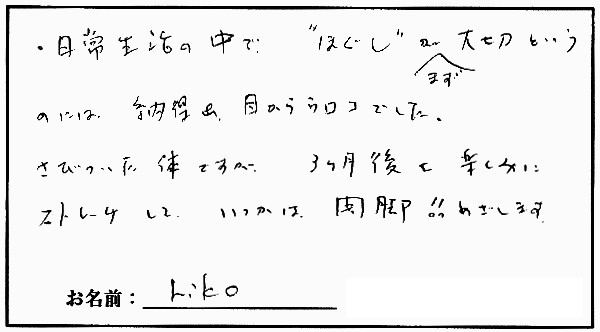 ・日常生活の中で "ほぐし" が 大切 という
まず
のには 納得出、目からウロコでした。
さびついた 体 ですが 3ヶ月後を 楽しみに
ストレッチして いつかは 開脚 めざします
お名前：hiko